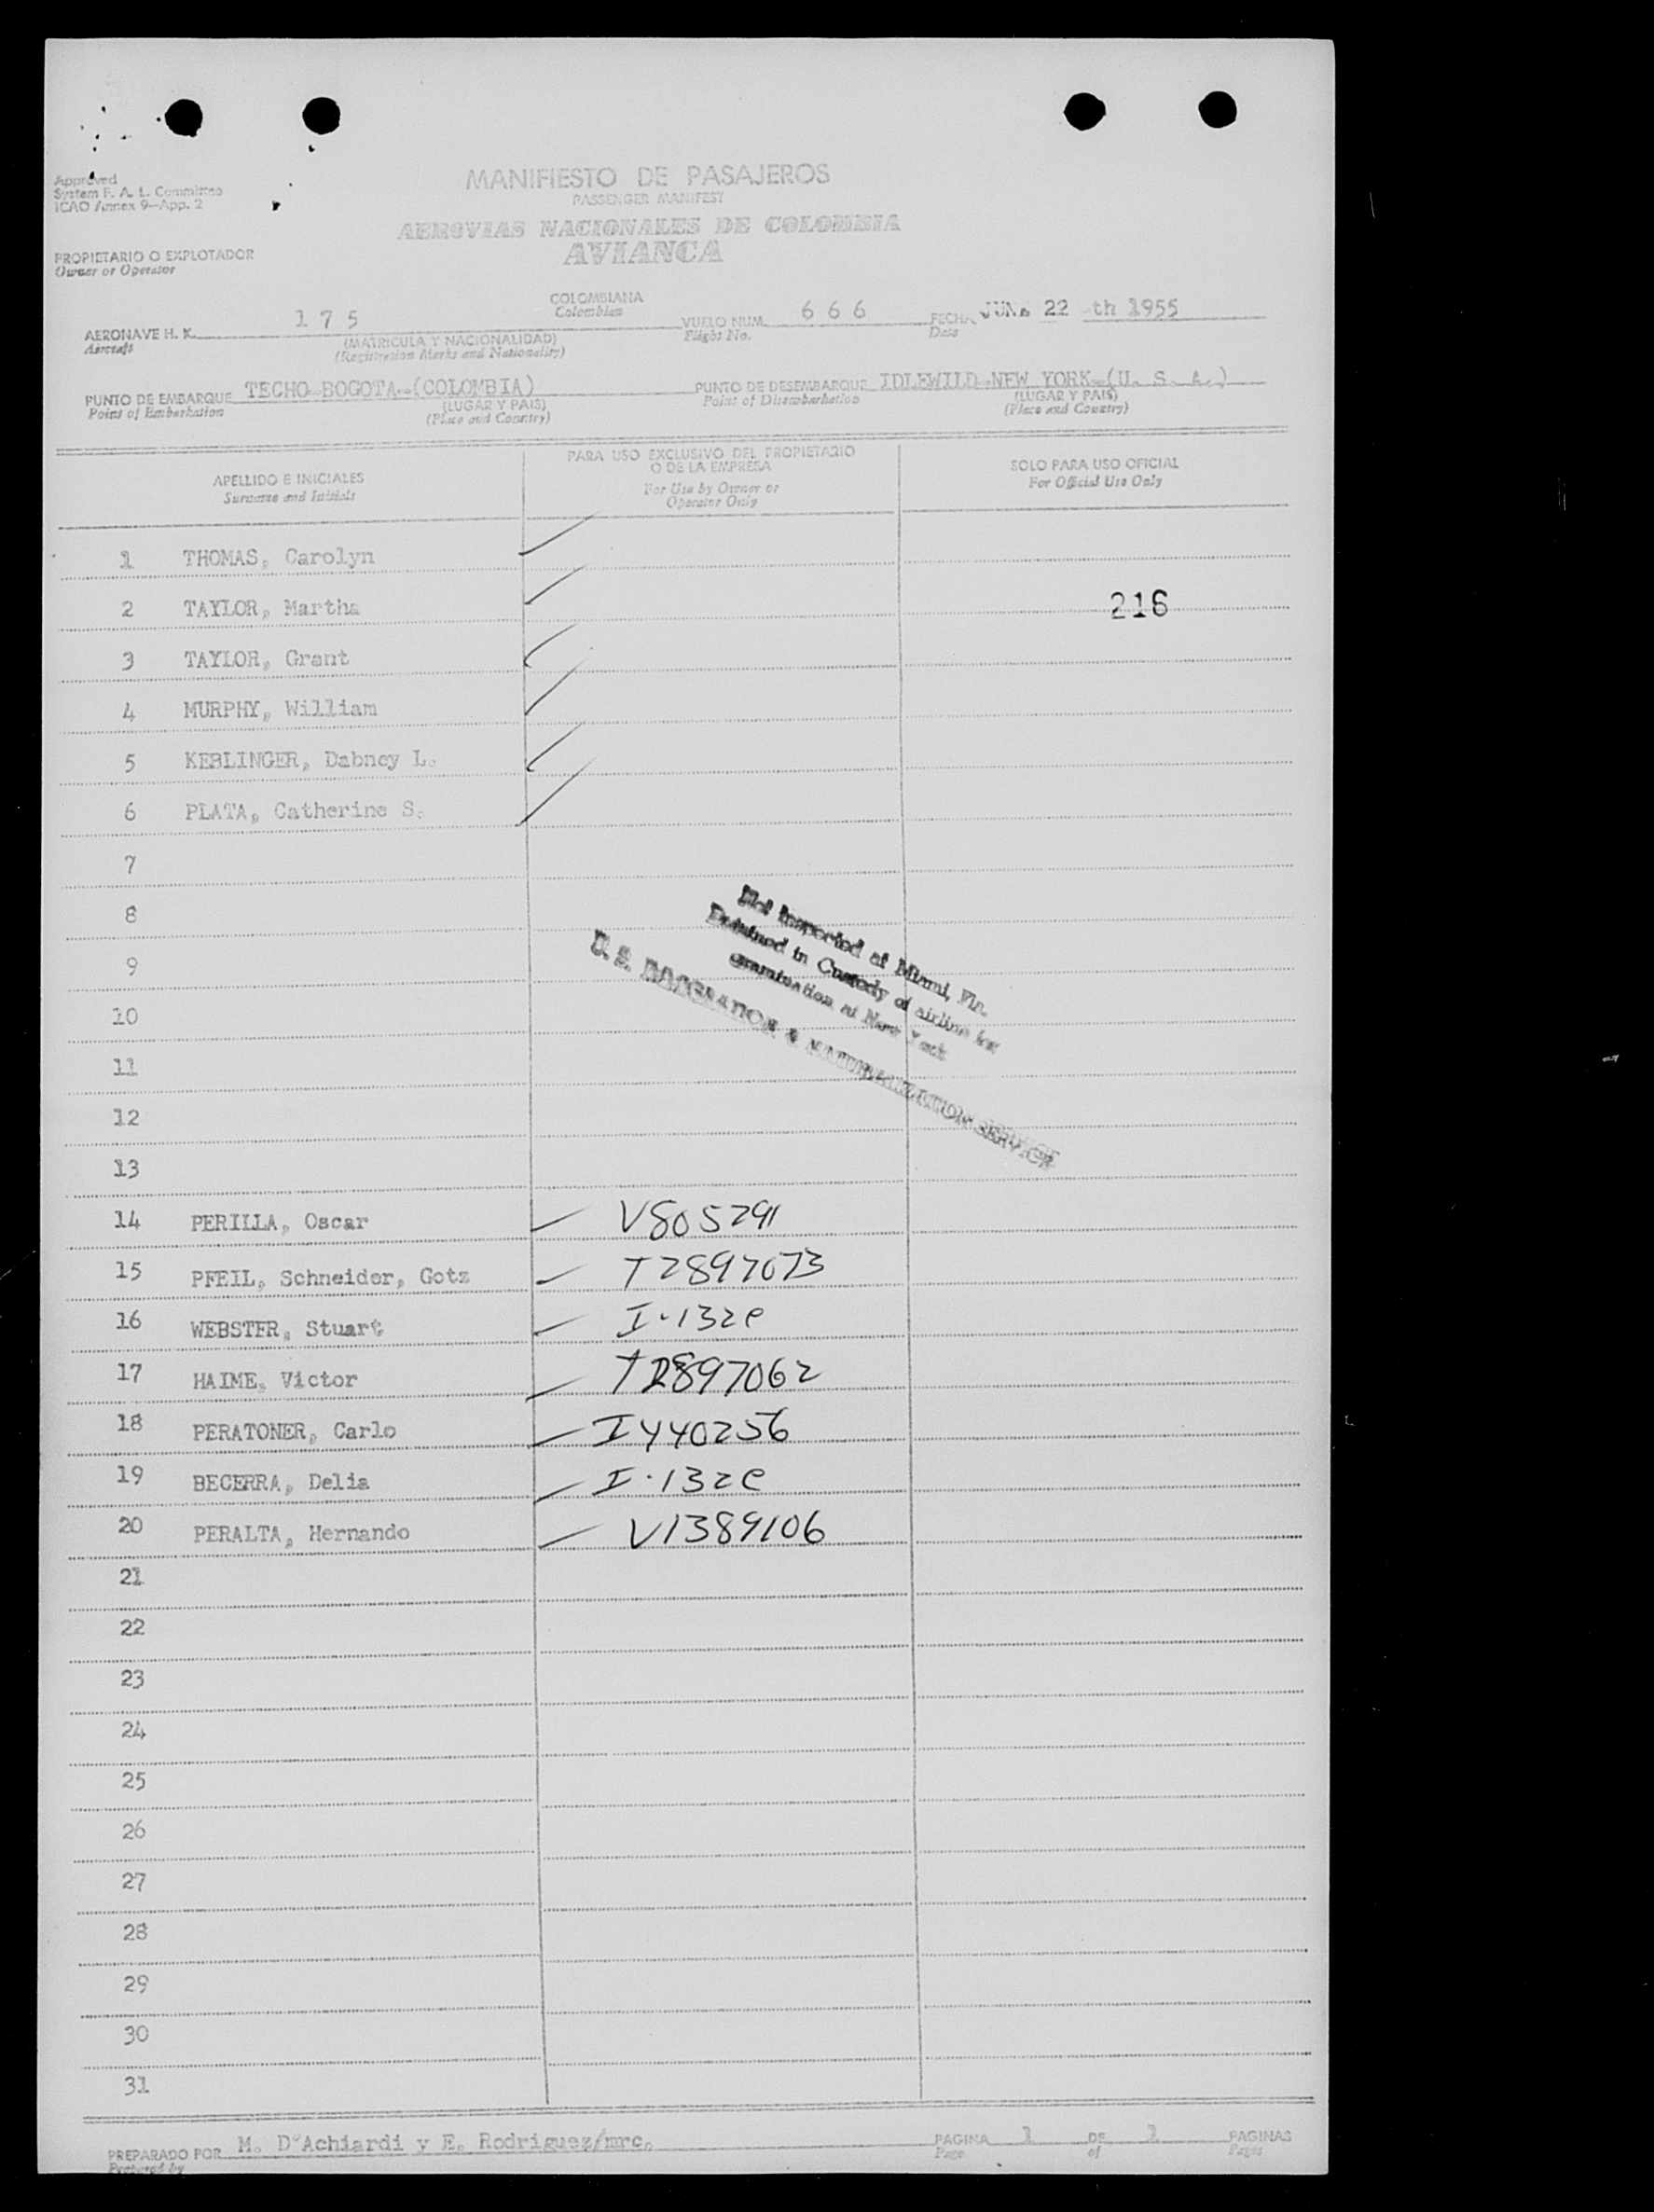 Approved
System F. A. L. Committee
ICAO Annex 9-App. 2
MANIFIESTO DE PASAJEROS
PASSENGER MANIFEST
AEROVIAS NACIONALES DE COLOMBIA
AVIANCA
PROPIETARIO O EXPLOTADOR
Owner or Operator
AERONAVE H. K. 175 COLOMBIANA VUELO NUM. 666 FECHA JUN. 22 th 1955
Aircraft (MATRICULA Y NACIONALIDAD) Colombian Flight No. Date
(Registration Marks and Nationality)
PUNTO DE EMBARQUE TECHO-BOGOTA-(COLOMBIA) PUNTO DE DESEMBARQUE IDLEWILD-NEW YORK-(U. S. A.)
Point of Embarkation (LUGAR Y PAIS) Point of Disembarkation (LUGAR Y PAIS)
(Place and Country) (Place and Country)
APELLIDO E INICIALES
Surname and Initials
PARA USO EXCLUSIVO DEL PROPIETARIO
O DE LA EMPRESA
For Use by Owner or
Operator Only
SOLO PARA USO OFICIAL
For Official Use Only
1 THOMAS, Carolyn
2 TAYLOR, Martha 216
3 TAYLOR, Grant
4 MURPHY, William
5 KEBLINGER, Dabney L.
6 PLATA, Catherine S.
7
8
9
10
11
12
13
Not Inspected at Miami, Fla.
Detained in Custody of airline for
examination at New York
U. S. IMMIGRATION & NATURALIZATION SERVICE
14 PERILLA, Oscar V805291
15 PFEIL, Schneider, Gotz T2897073
16 WEBSTER, Stuart I-132e
17 HAIME, Victor T2897062
18 PERATONER, Carlo I440256
19 BECERRA, Delia I-132e
20 PERALTA, Hernando V1389106
21
22
23
24
25
26
27
28
29
30
31
PREPARADO POR M. D'Achiardi y E. Rodriguez/mrc. PAGINA 1 DE 1 PAGINAS
Prepared by Page of Pages